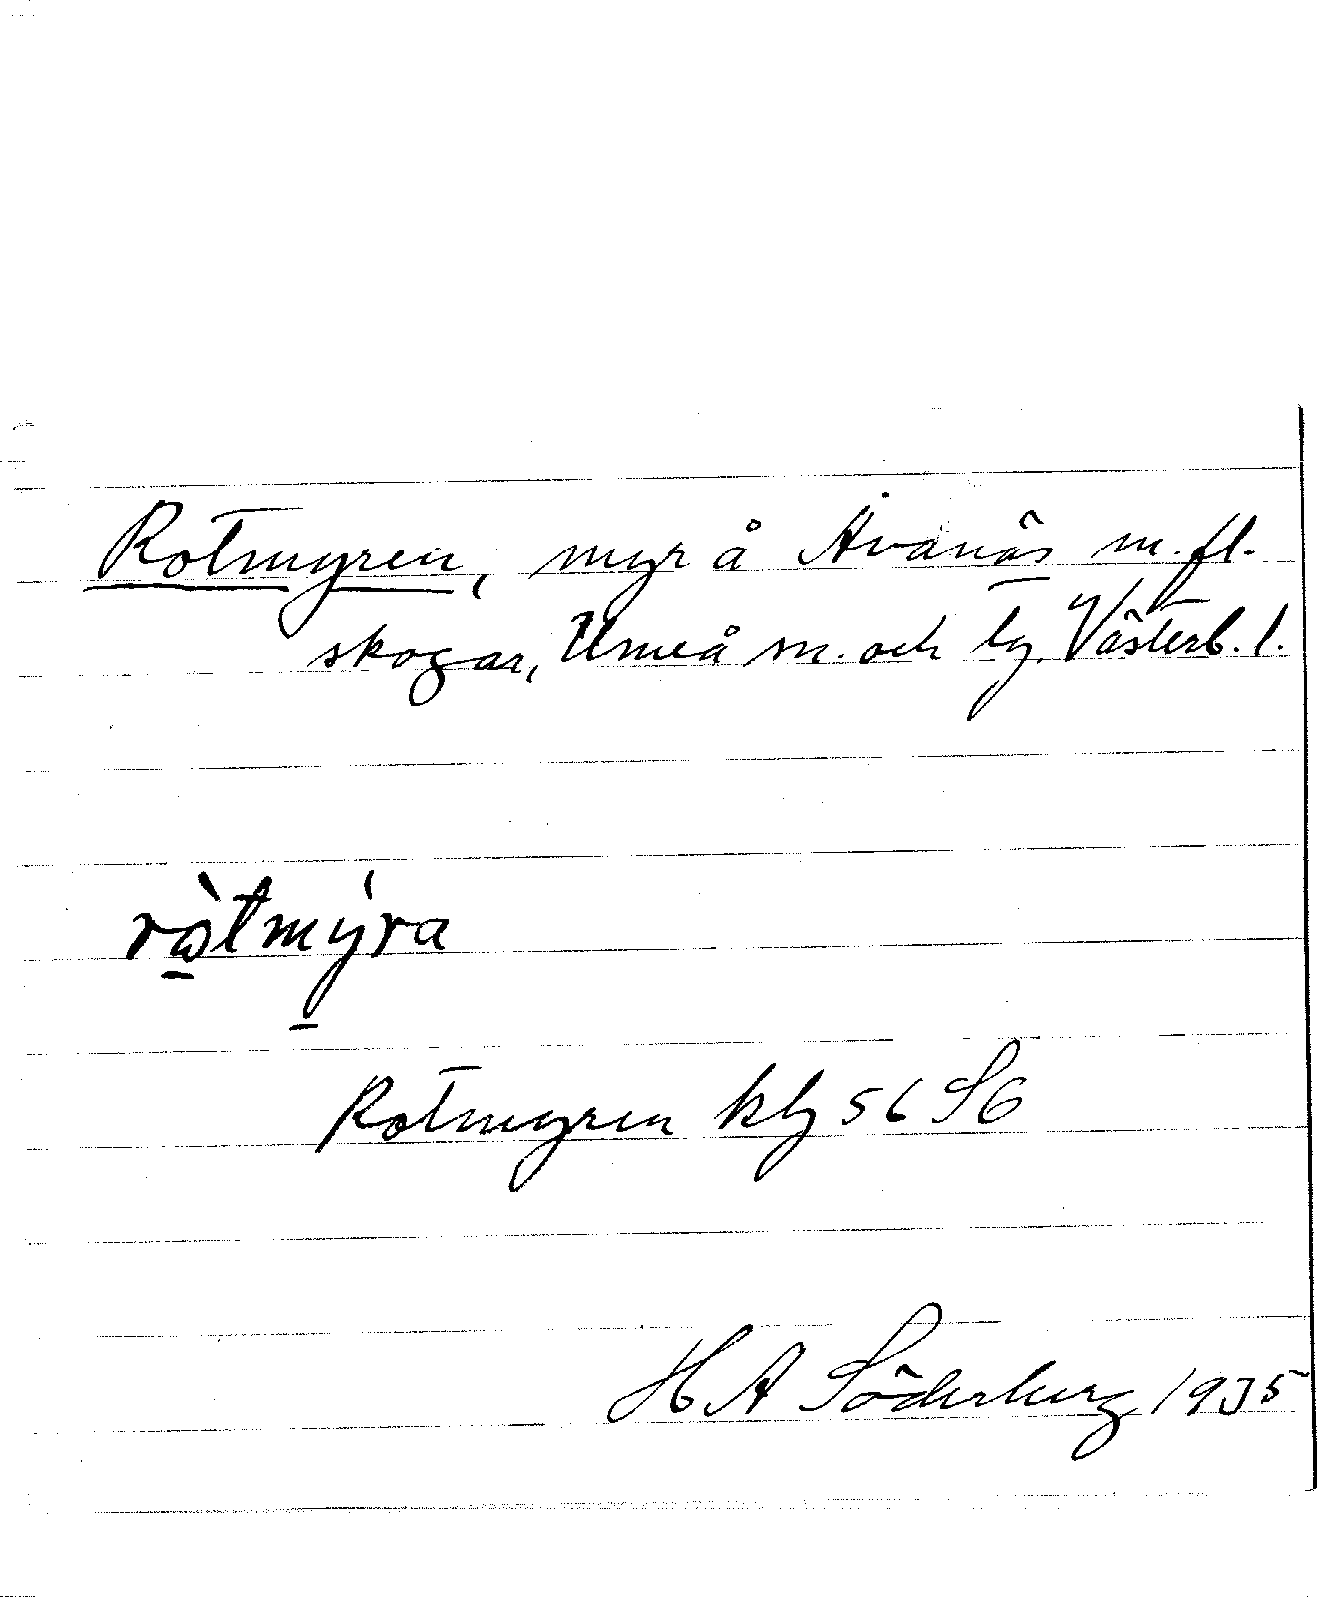 Rotmyren, myr å Åvanäs m.fl.
skogar, Umeå sn. och tg. Västerb. l.
ròtmýra
Rotmyren kbg 56 S6
H A Söderberg 1935